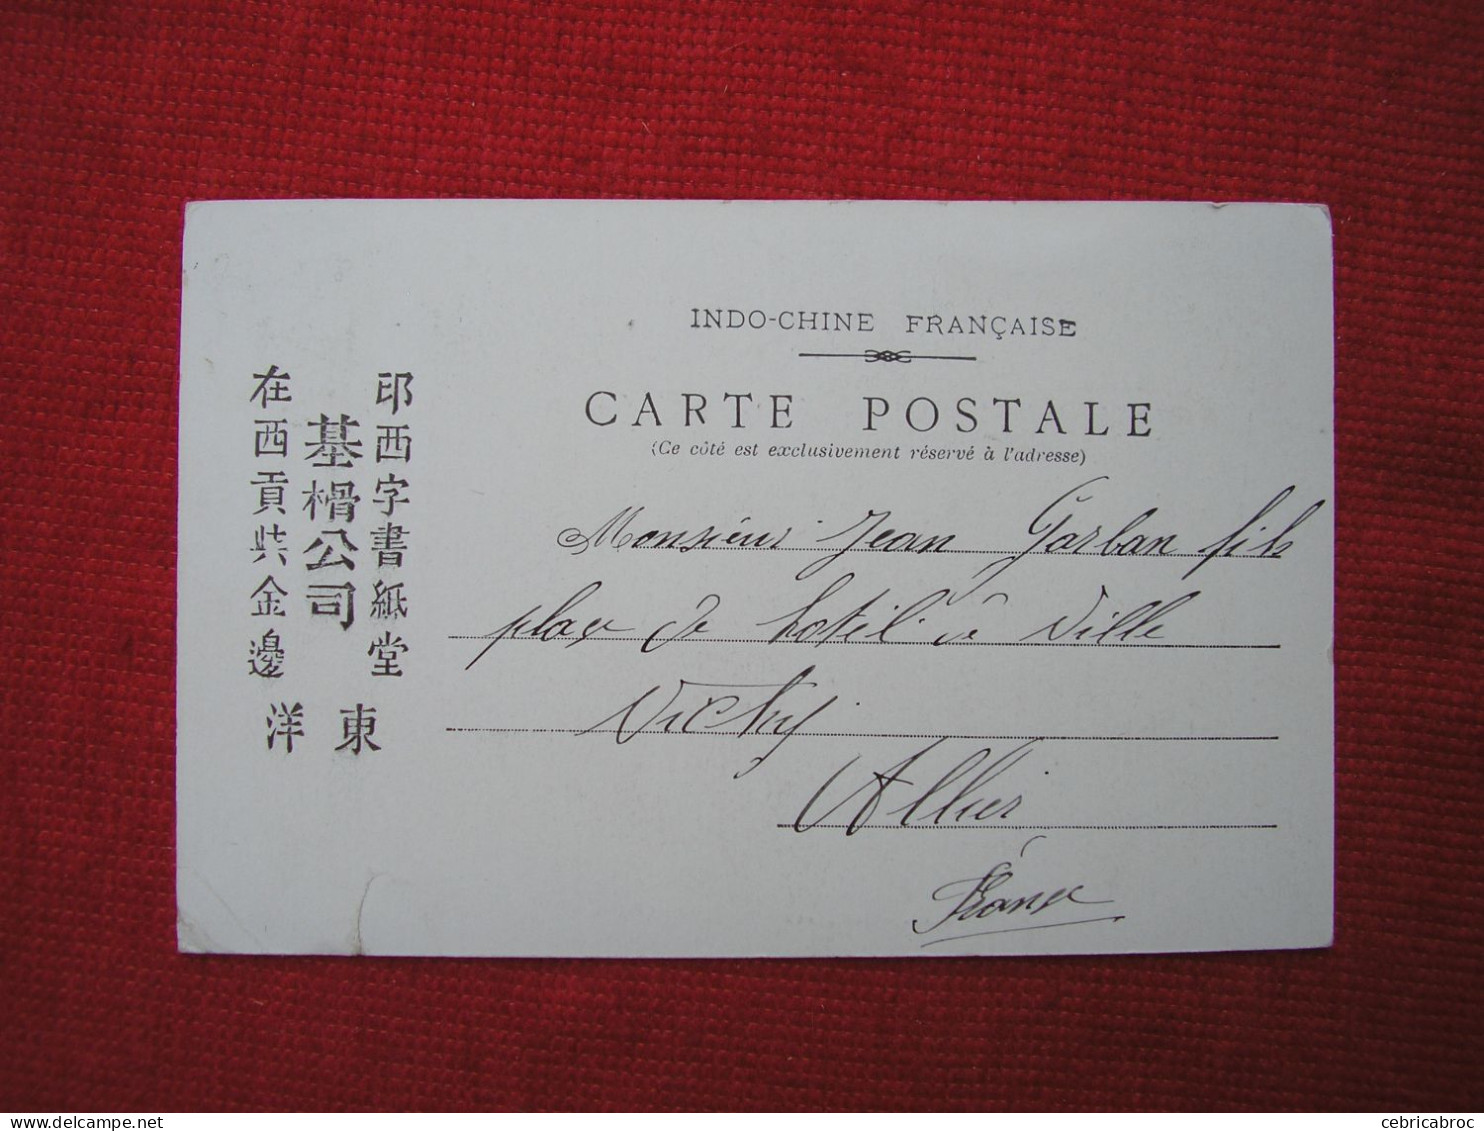 INDO-CHINE FRANÇAISE
CARTE POSTALE
(Ce côté est exclusivement réservé à l'adresse)
Monsieur Jean Garban fils
place de hotel de Ville
Vichy
Allier
France
印西字書紙堂
基榾公司
在西貢共金邊
東洋
delcampe.net
cebricabroc